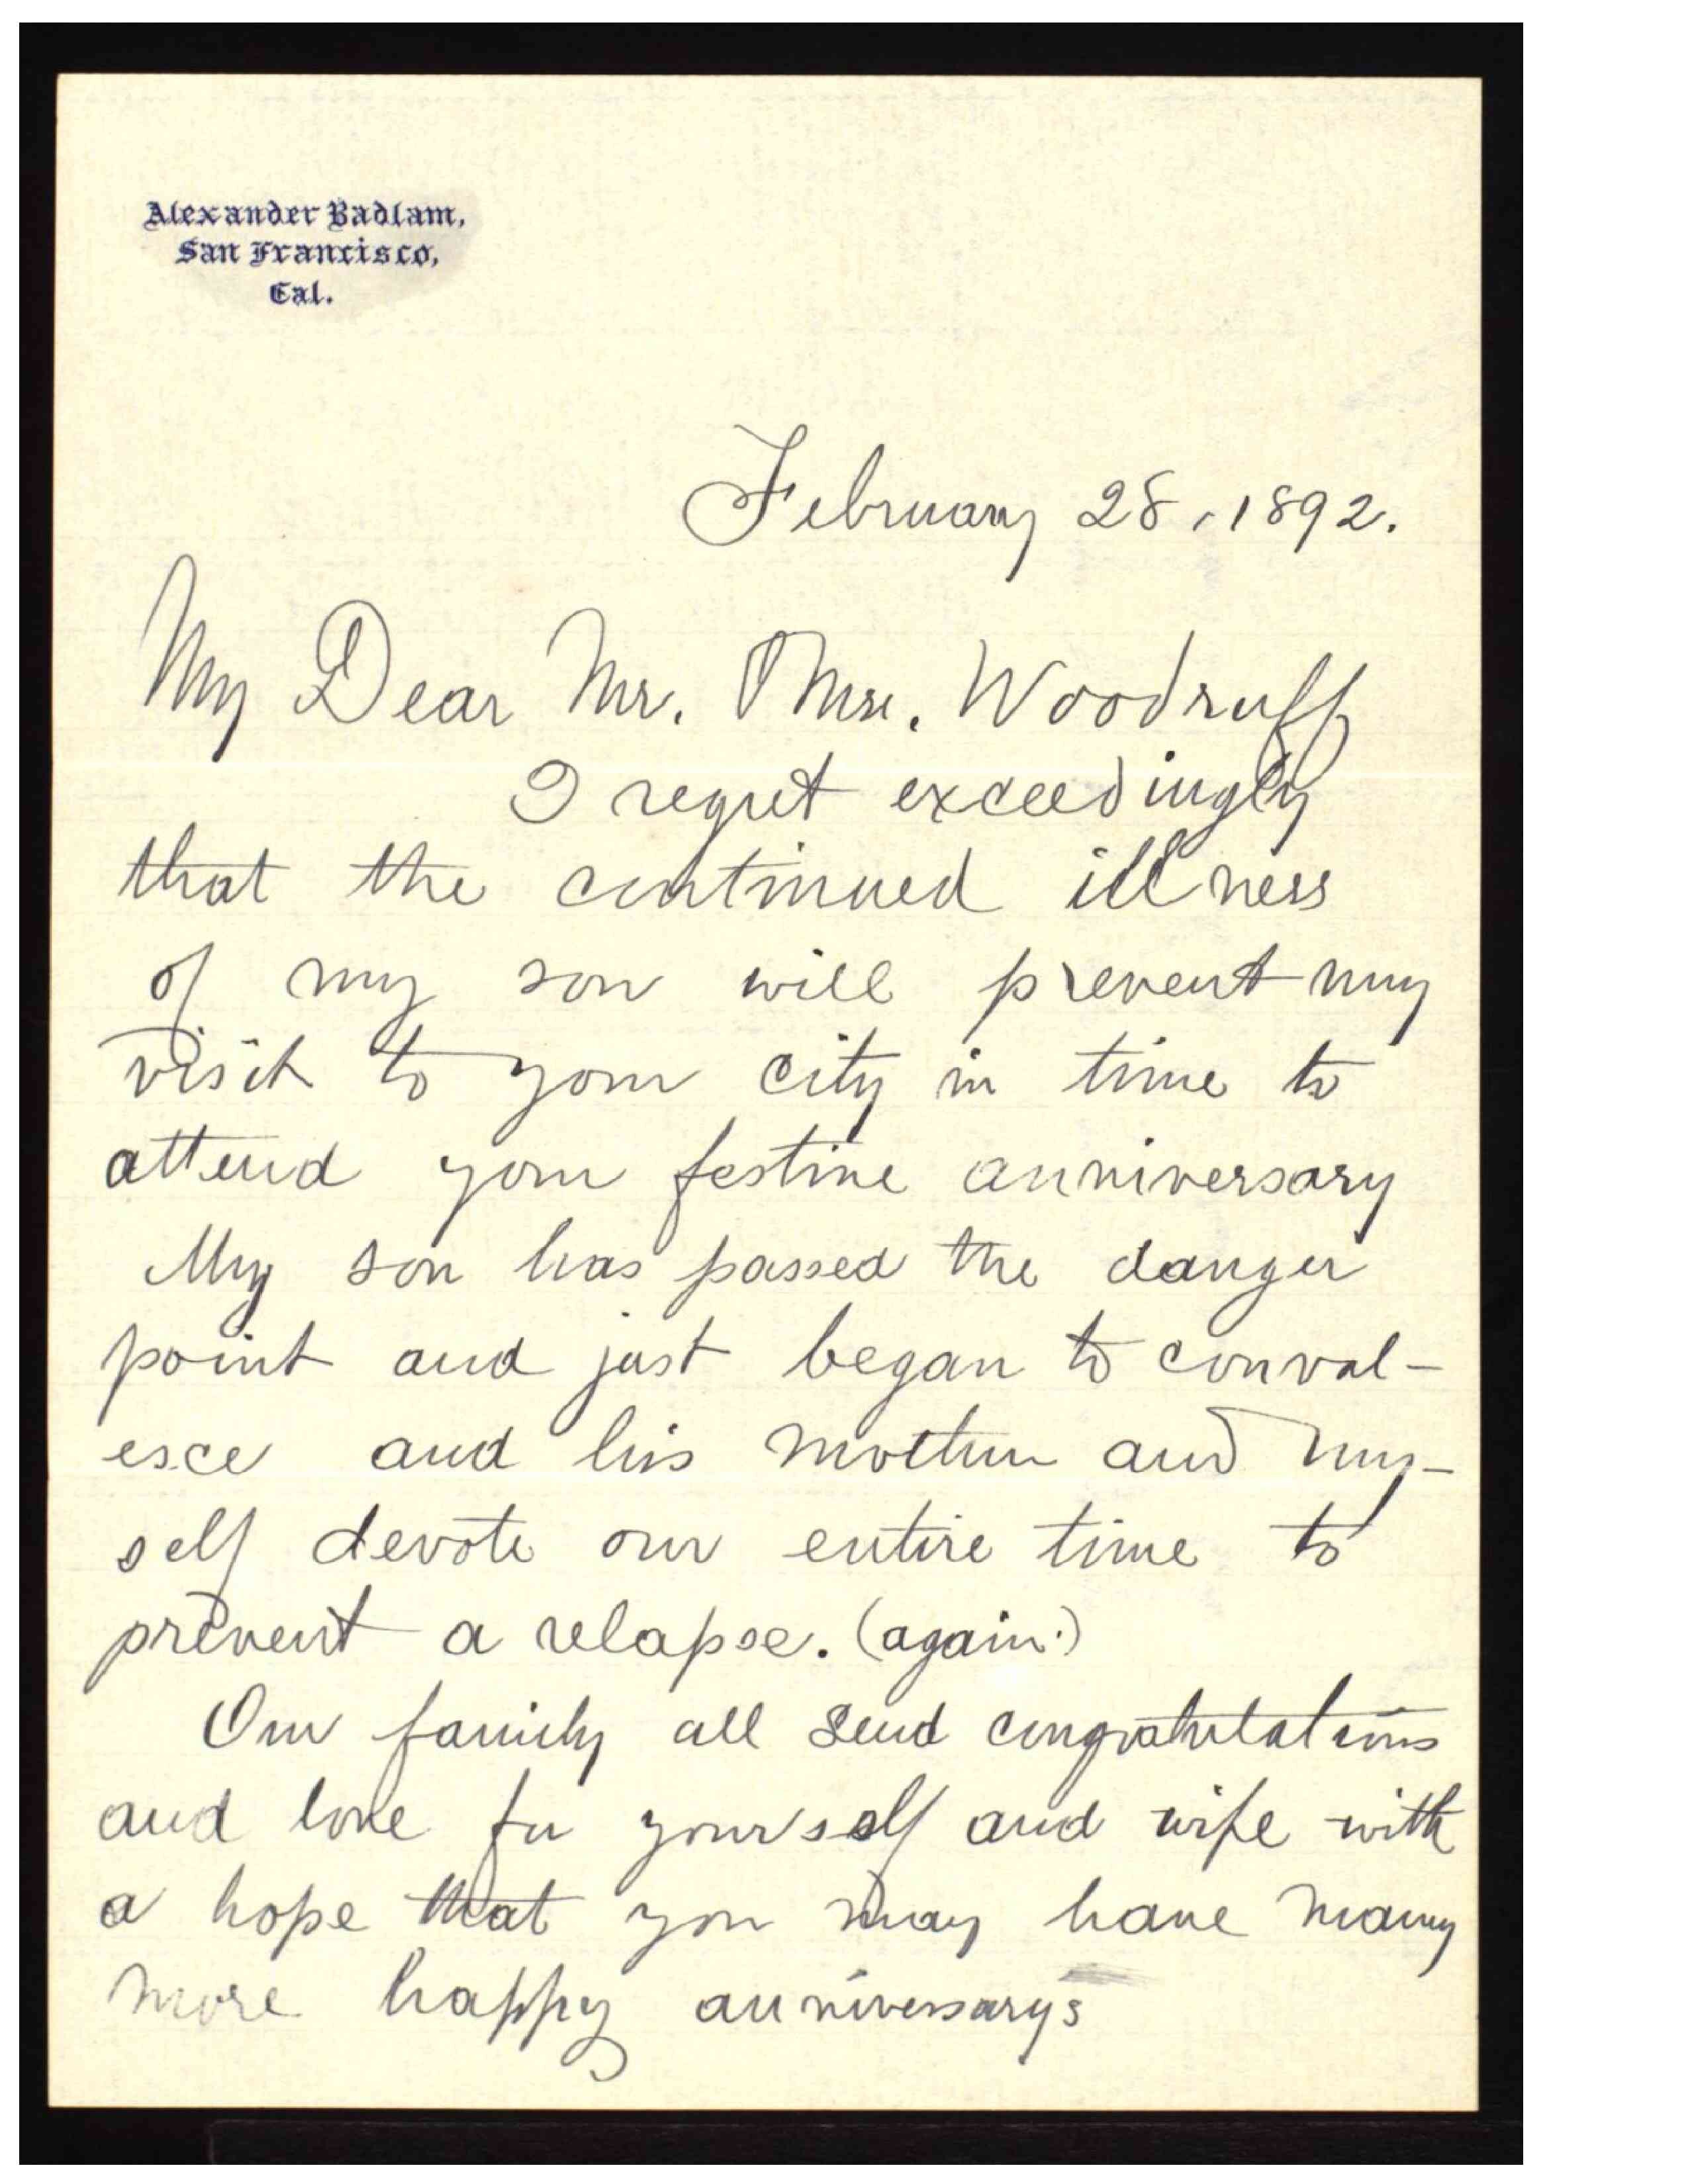 Alexander Badlam,
San Francisco,
Cal.
February 28, 1892.
My Dear Mr. & Mrs. Woodruff
I regret exceedingly
that the continued illness
of my son will prevent my
visit to your city in time to
attend your festive anniversary
My son has passed the danger
point and just began to conval-
esce and his mother and my-
self devote our entire time to
prevent a relapse. (again.)
Our family all send congratulations
and love for yourself and wife with
a hope that you may have many
more happy anniversarys